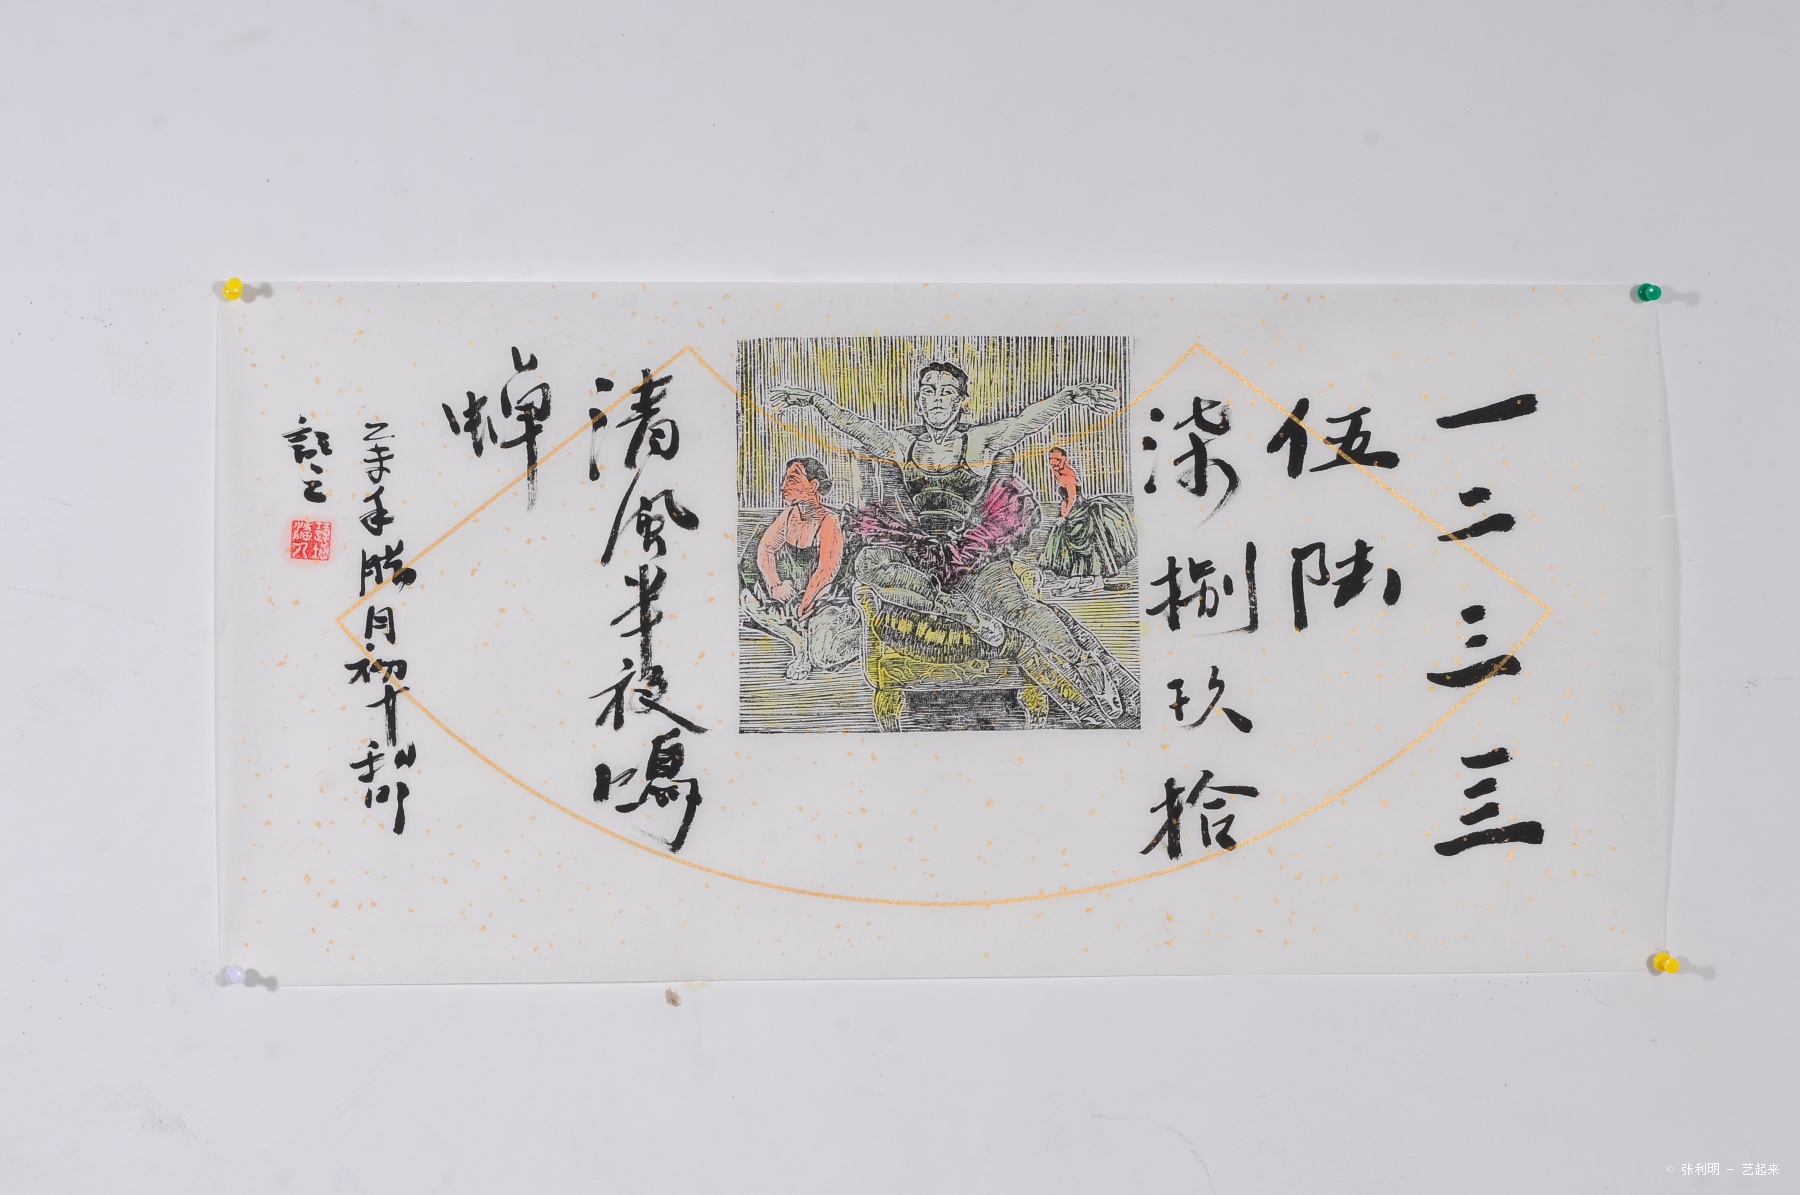 一二三亖
伍陆
柒捌玖拾
清風半夜鳴
蝉
乙未年腊月初十利明
記之
© 张利明 - 艺起来